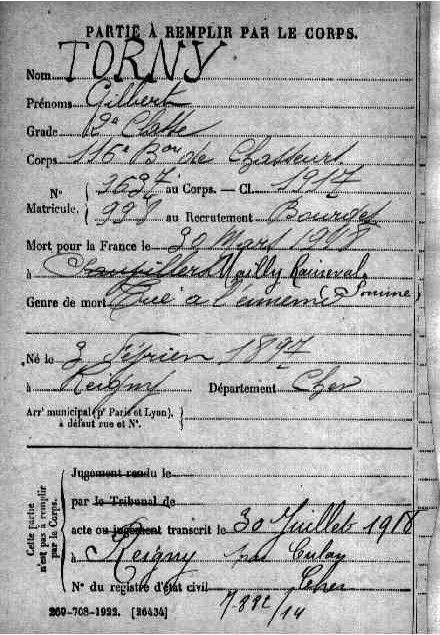 PARTIE À REMPLIR PAR LE CORPS.
Nom TORNY
Prénoms Gilbert
Grade 2e Classe
Corps 116e Bon de Chasseurs
N° 3697 au Corps. — Cl. 1917
Matricule. 998 au Recrutement Bourges
Mort pour la France le 30 Mars 1918
à Mailly Raineval
(Somme)
Genre de mort Tué à l'ennemi
Né le 3 Février 1897
à Reigny Département Cher
Arrt municipal (pr Paris et Lyon),
à défaut rue et N°.
Cette partie
n'est pas à remplir
par le Corps.
Jugement rendu le
par le Tribunal de
acte ou jugement transcrit le 30 Juillet 1918
à Reigny par Culan
Cher
N° du registre d'état civil
260-708-1922. [26434]